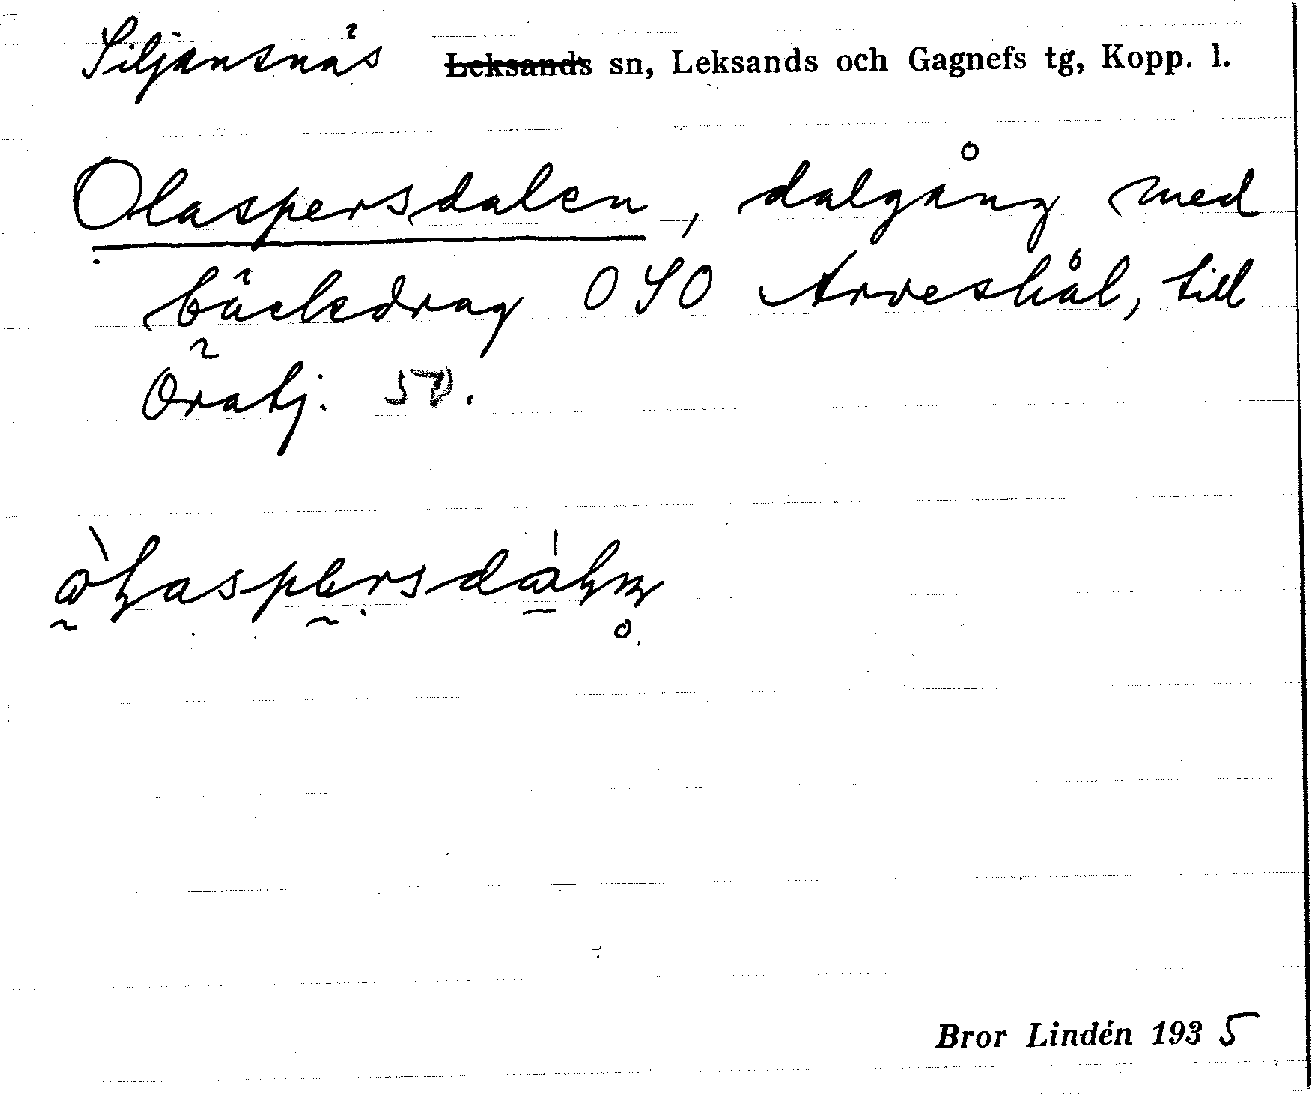 Siljansnäs Leksands sn, Leksands och Gagnefs tg, Kopp. l.
Olaspersdalen, dalgång med
bäckdrag OSO Arveshål, till
Öratj. SV.
Bror Lindén 1935